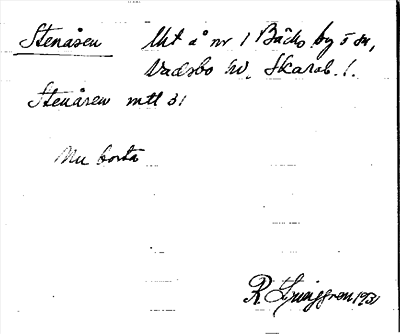 Stenåsen Ut å nr 1 Bäcks by i sn,
Vadsbo hd, Skarab. l.
Stenåsen mtl 31
Nu borta
R. Ljunggren 1931